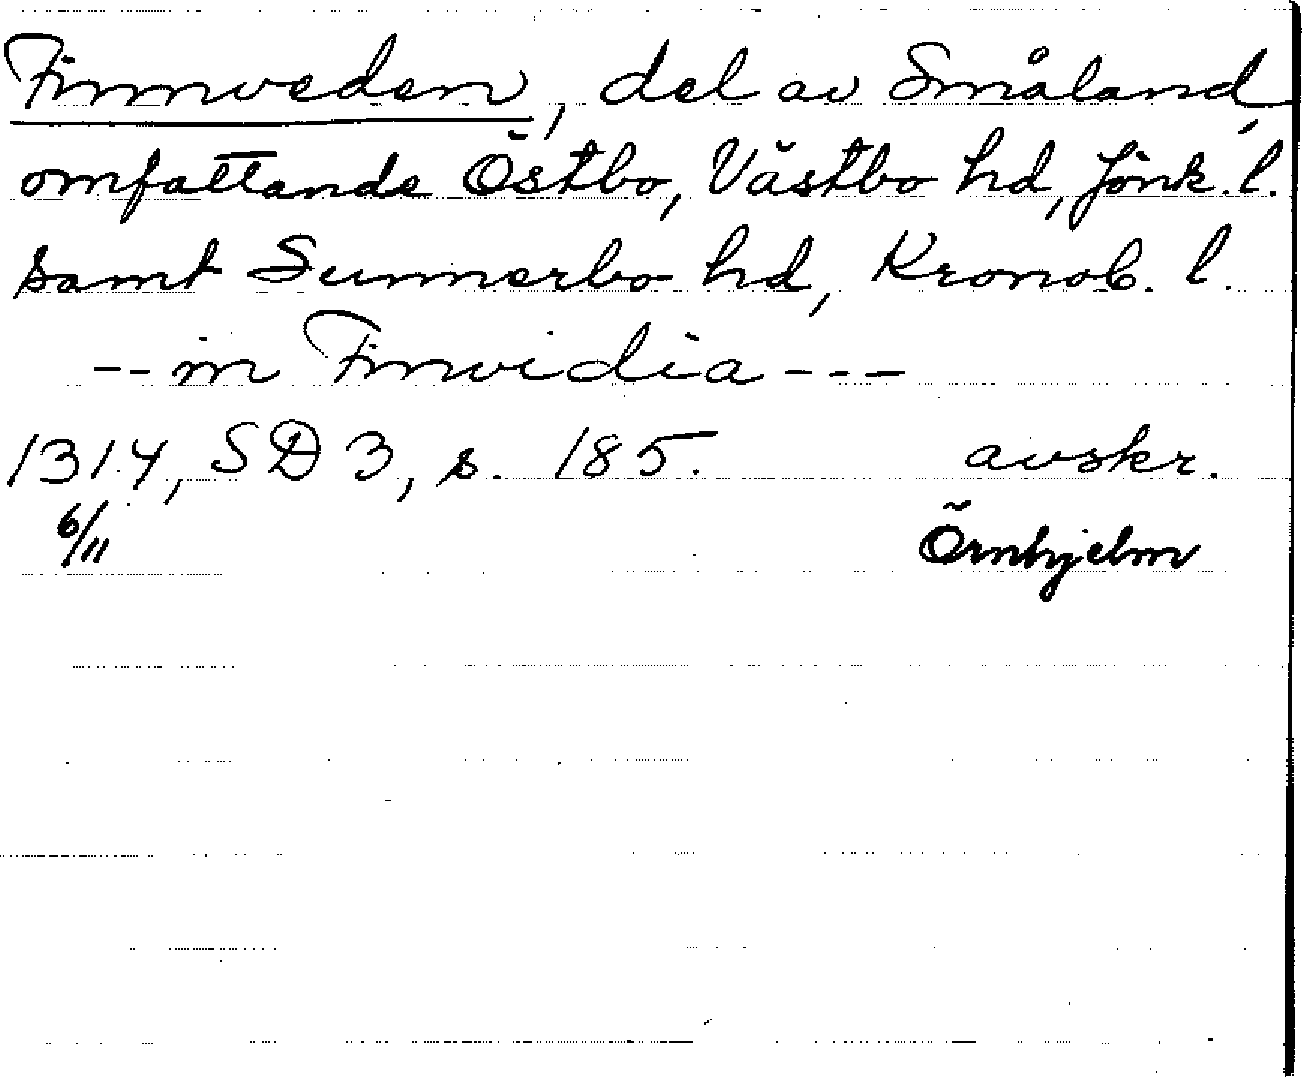 Finnveden, del av Småland,
omfattande Östbo, Västbo hd, Jönk. l.
samt Sunnerbo hd, Kronob. l.
-- in Finvidia ---
1314, SD 3, s. 185. avskr.
6/11 Örnhjelm